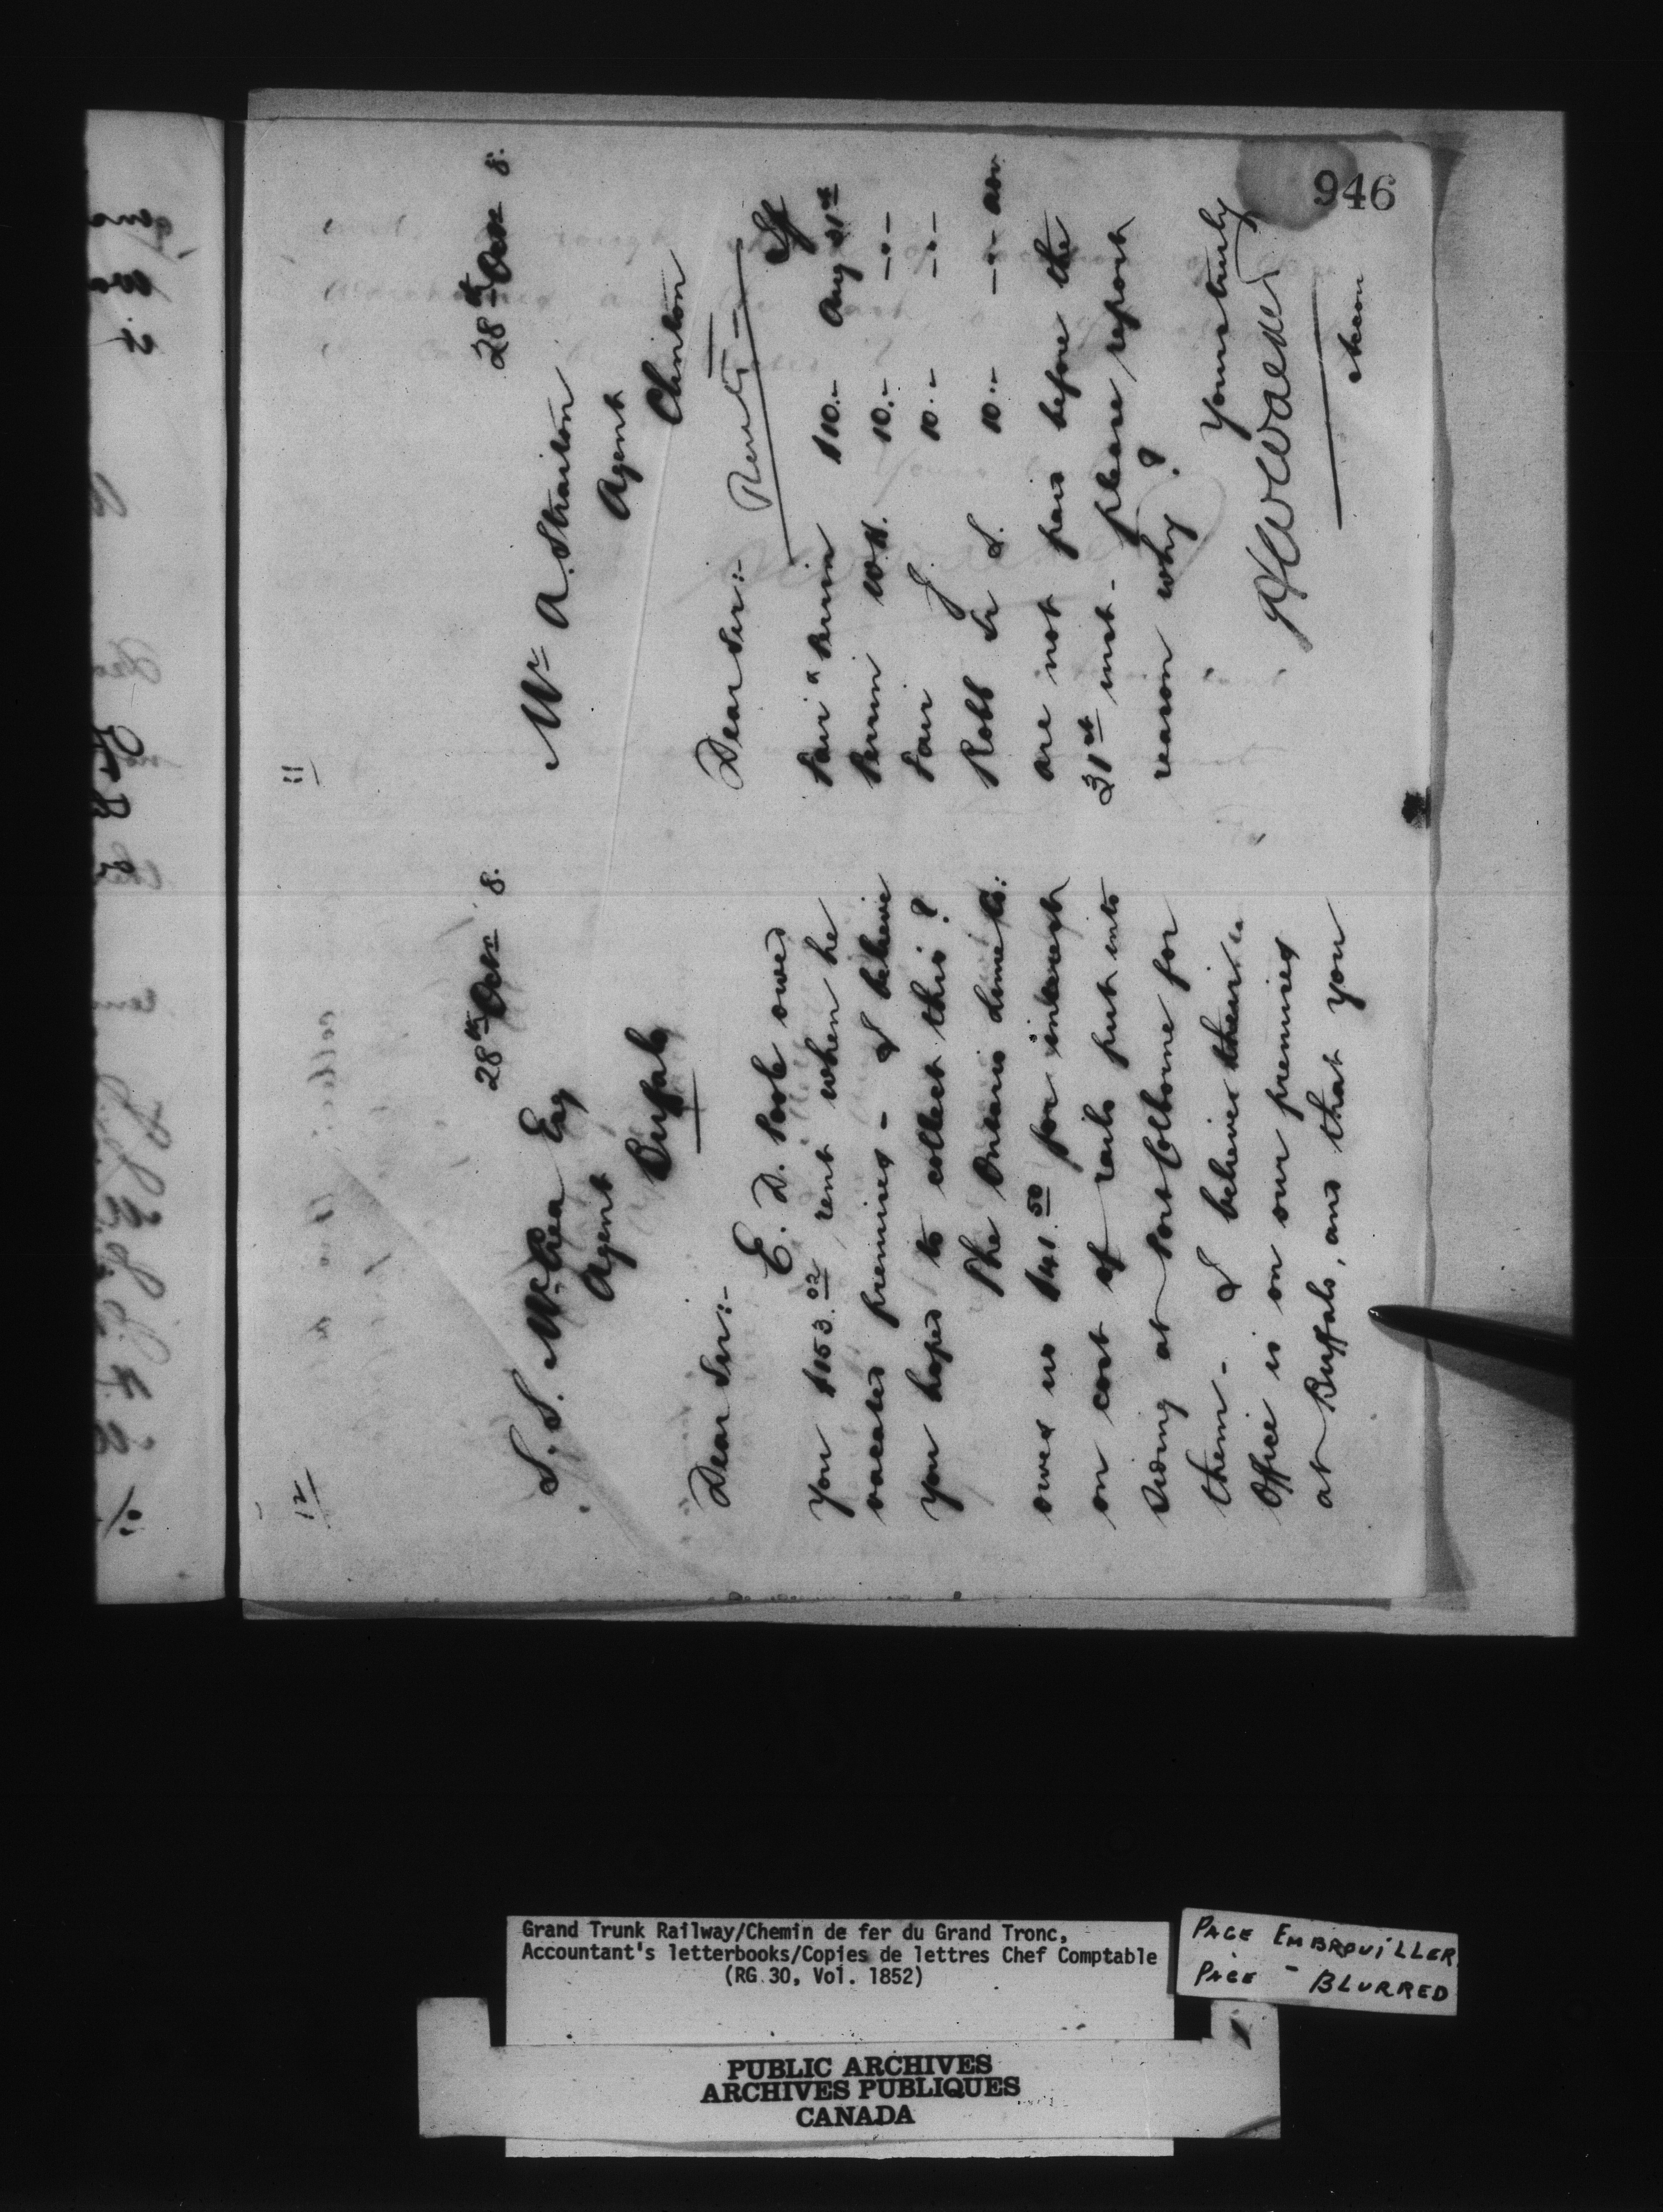 946
12
28th Octr 8.
S. S. McCrea Esq
Agent
Buffalo
Dear Sir:-
E. D. Poole owed
you $153.02 rent when he
vacated premises - I believe
you hoped to collect this?
The Ontario Lime Co:
owes us $41.50 for interest
on cost of rails put into
Siding at Port Colborne for
them - I believe their
Office is on our premises
at Buffalo, and that you
11
28th Octr 8.
Mr A. Straiton
Agent
Clinton
Dear Sir:-
Rents
Fair $10.- Aug 31st
W.H. 10.- -"-
Fair J 10.- -"-
Robb 10.- -"-
are not paid before the
31st inst - please report
reason why?
Yours truly
Grand Trunk Railway/Chemin de fer du Grand Tronc,
Accountant's letterbooks/Copies de lettres Chef Comptable
(RG 30, Vol. 1852)
PAGE EMBROUILLER
PAGE - BLURRED
PUBLIC ARCHIVES
ARCHIVES PUBLIQUES
CANADA